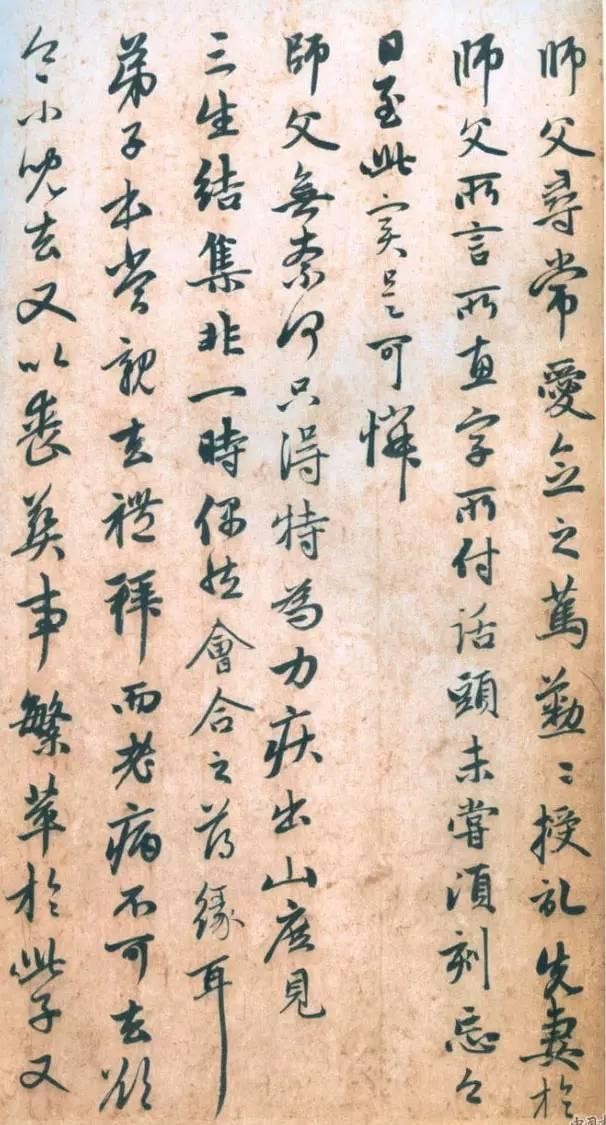 師父尋常愛念之篤勤〻授記先妻於
師父所言所惠字所付話頭未嘗須刻忘今
日至此實是可憐
師父無奈何只得特為力疾出山庶見
三生結集非一時偶然會合之薄緣耳
弟子本當親去禮拜而老病不可去欲
令小兒去又以喪葬事繁萃於此子又